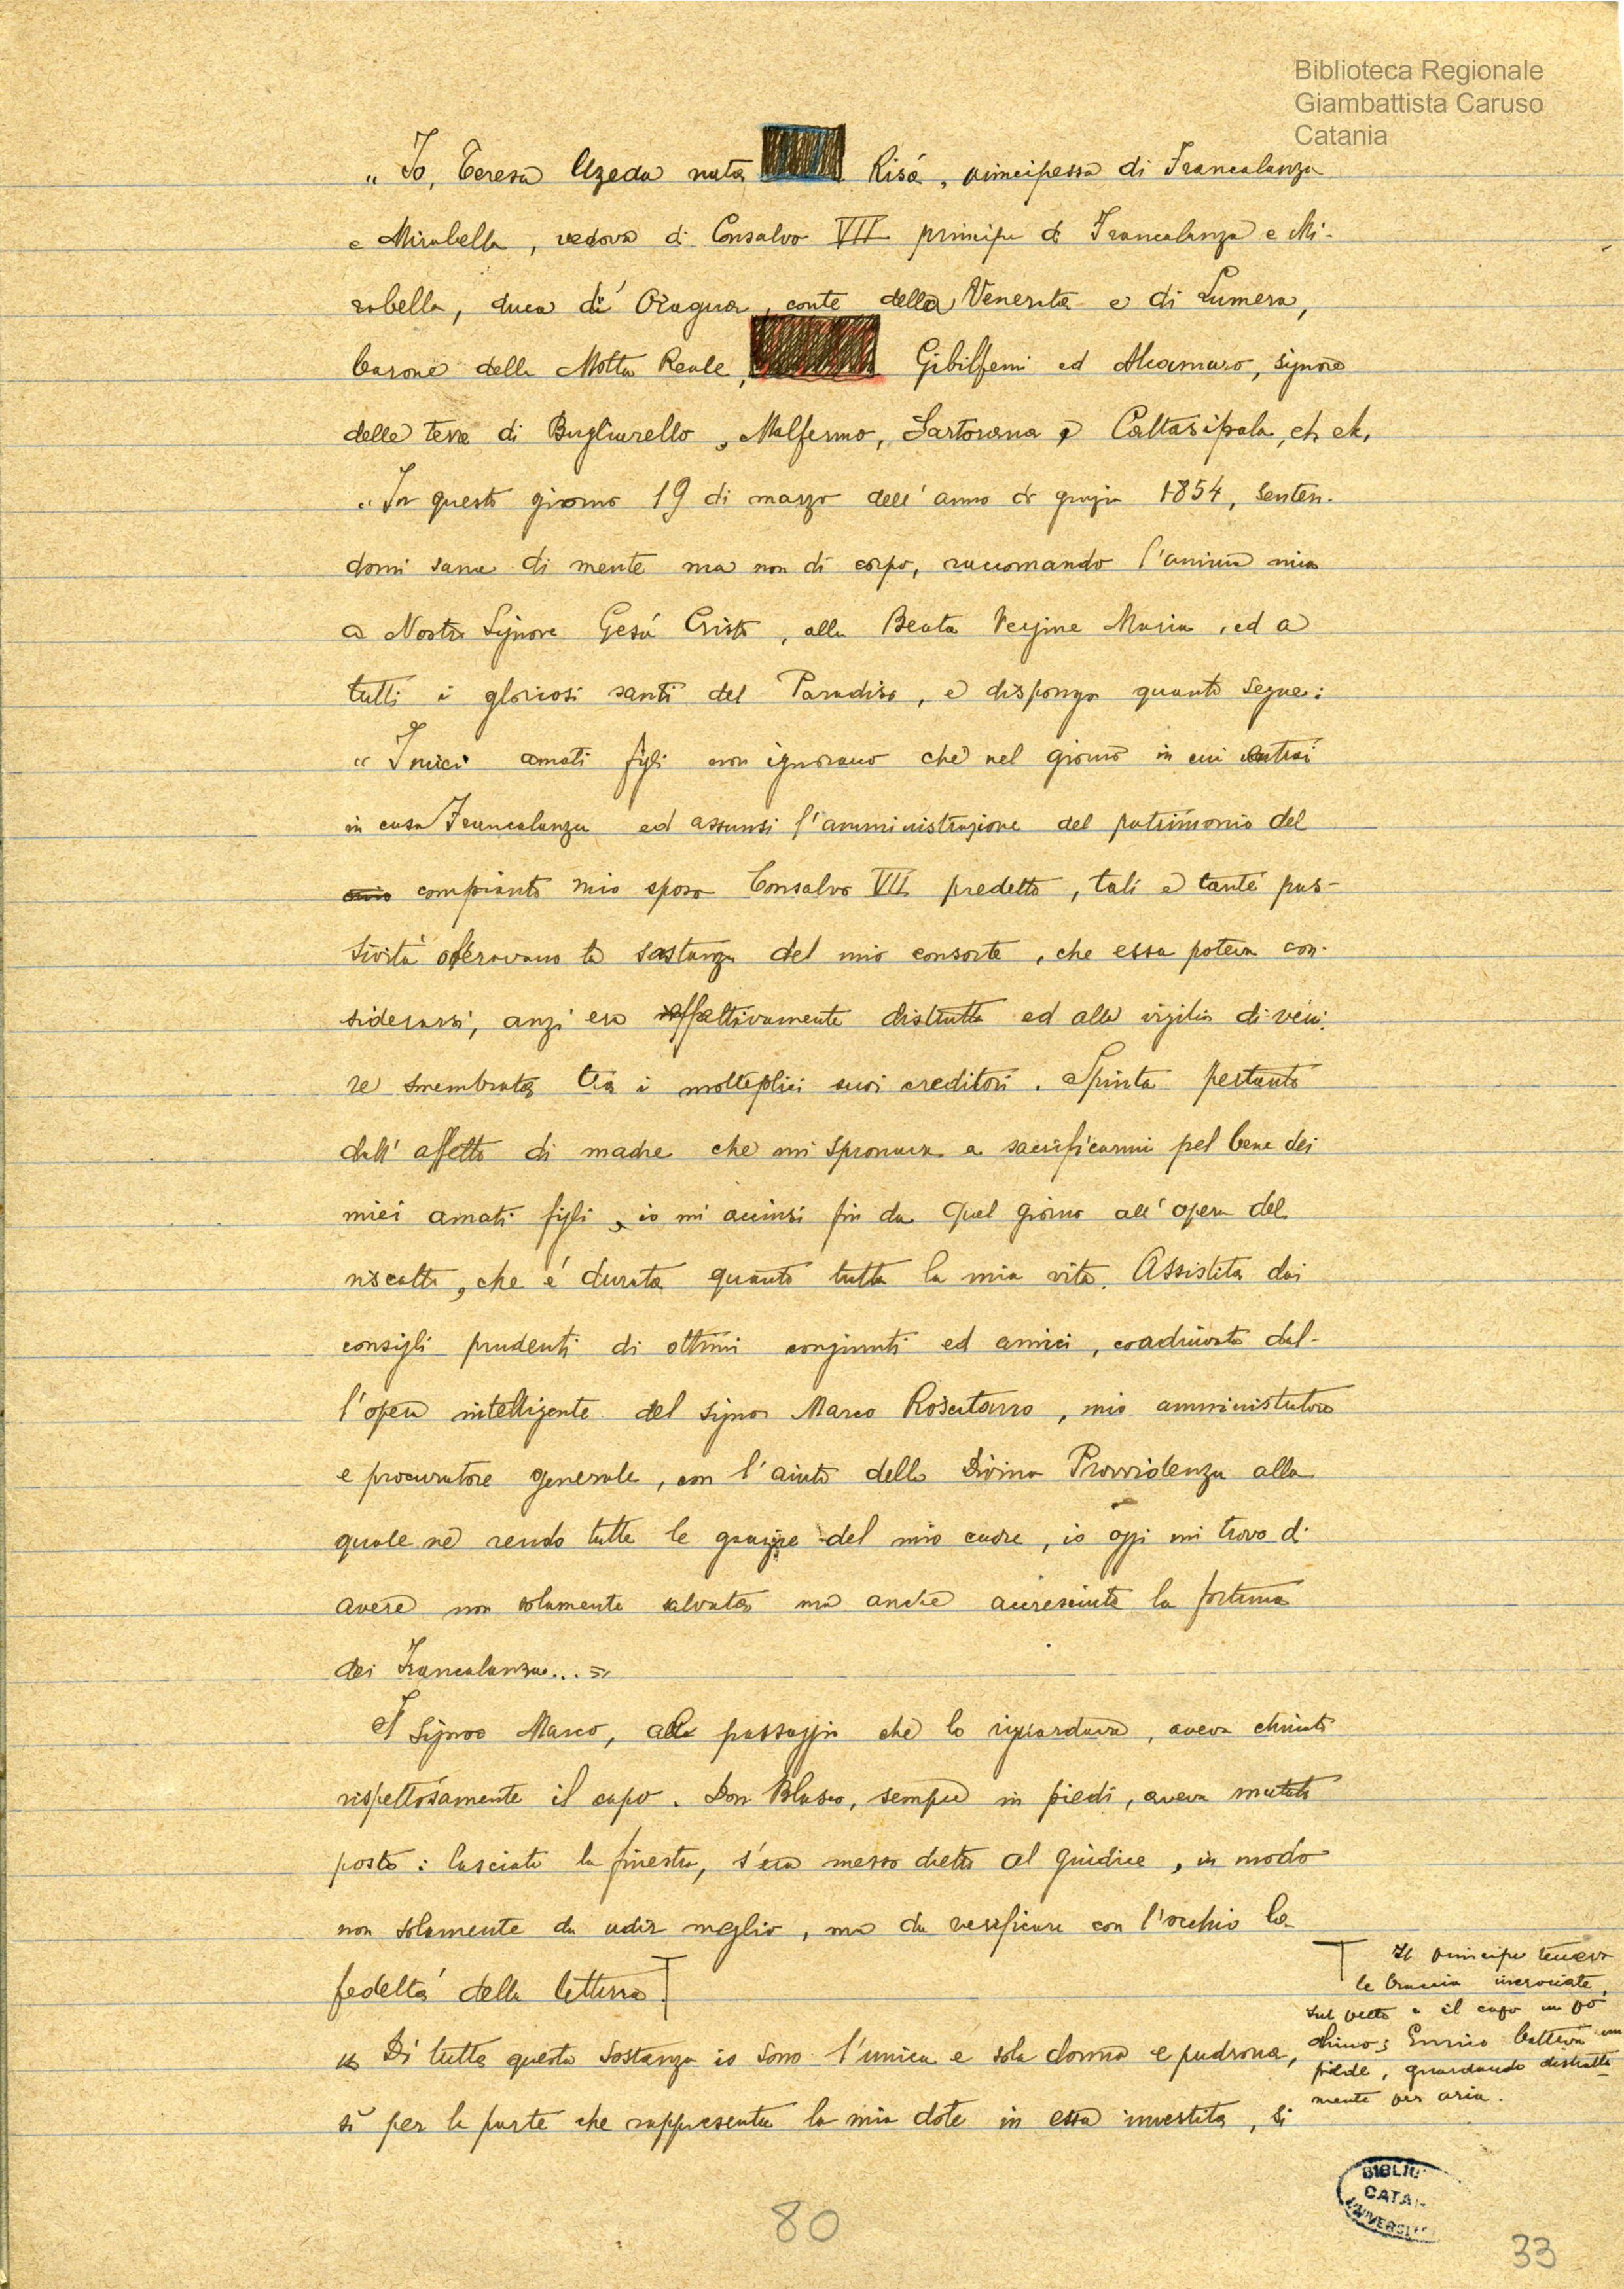 Biblioteca Regionale
Giambattista Caruso
Catania
"Io, Teresa Uzeda nata Risà, principessa di Francalanza
e Mirabella, vedova di Consalvo VII principe di Francalanza e Mi-
rabella, duca di Oragua, conte della Venerata e di Lumera,
barone della Motta Reale, Gibilfemi ed Alcamuro, signore
delle terre di Bugliarello, Malfermo, Martorana e Caltasipala, etc etc,
"In questo giorno 19 di marzo dell'anno di grazia 1854, senten-
domi sana di mente ma non di corpo, raccomando l'anima mia
a Nostro Signore Gesù Cristo, alla Beata Vergine Maria, ed a
tutti i gloriosi santi del Paradiso, e dispongo quanto segue:
"I miei amati figli non ignorano che nel giorno in cui entrai
in casa Francalanza ed assunsi l'amministrazione del patrimonio del
mio compianto mio sposo Consalvo VII predetto, tali e tante pas-
sività oberavano la sostanza del mio consorte, che essa poteva con-
siderarsi, anzi era effettivamente distrutta ed alla vigilia di veni-
re smembrata tra i molteplici suoi creditori. Spinta pertanto
dall'affetto di madre che mi spronava a sacrificarmi pel bene dei
miei amati figli, io mi accinsi fin da quel giorno all'opera del
riscatto, che è durata quanto tutta la mia vita. Assistita dai
consigli prudenti di ottimi congiunti ed amici, coadiuvata dal-
l'opera intelligente del signor Marco Roscitano, mio amministratore
e procuratore generale, con l'aiuto della Divina Provvidenza alla
quale ne rendo tutte le grazie del mio cuore, io oggi mi trovo di
avere non solamente salvata ma anche accresciuta la fortuna
dei Francalanza... =
Il Signor Marco, al passaggio che lo riguardava, aveva chinato
rispettosamente il capo. Don Blasco, sempre in piedi, aveva mutato
posto: lasciata la finestra, s'era messo dietro al giudice, in modo
non solamente da udir meglio, ma da verificare con l'occhio la
fedeltà della lettura
Il principe teneva
le braccia incrociate
sul petto e il capo un pò
chino; Enrico batteva un
piede, guardando distratta-
mente per aria.
"Di tutta questa sostanza io sono l'unica e sola donna e padrona,
sì per la parte che rappresenta la mia dote in essa investita, sì
80
33